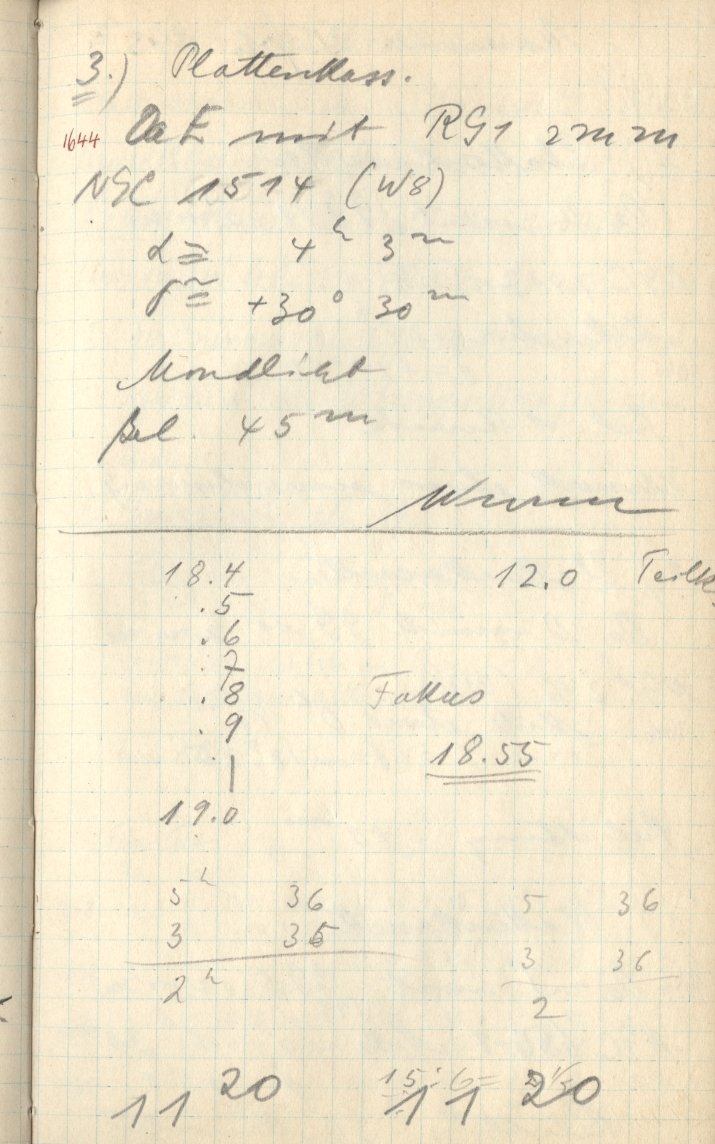 3.) Plattenkass.
1644 OaE mit RG1 2mm
NGC 1514 (W8)
α ≅ 4h 3m
δ ≅ +30° 30m
Mondlicht
Bel. 45m
Wurm
18.4 12.0
.5
.6
.7
.8 Fokus
.9 18.55
19.0
5h 36 5 36
3 35 3 36
2h 2
11 20 11 20